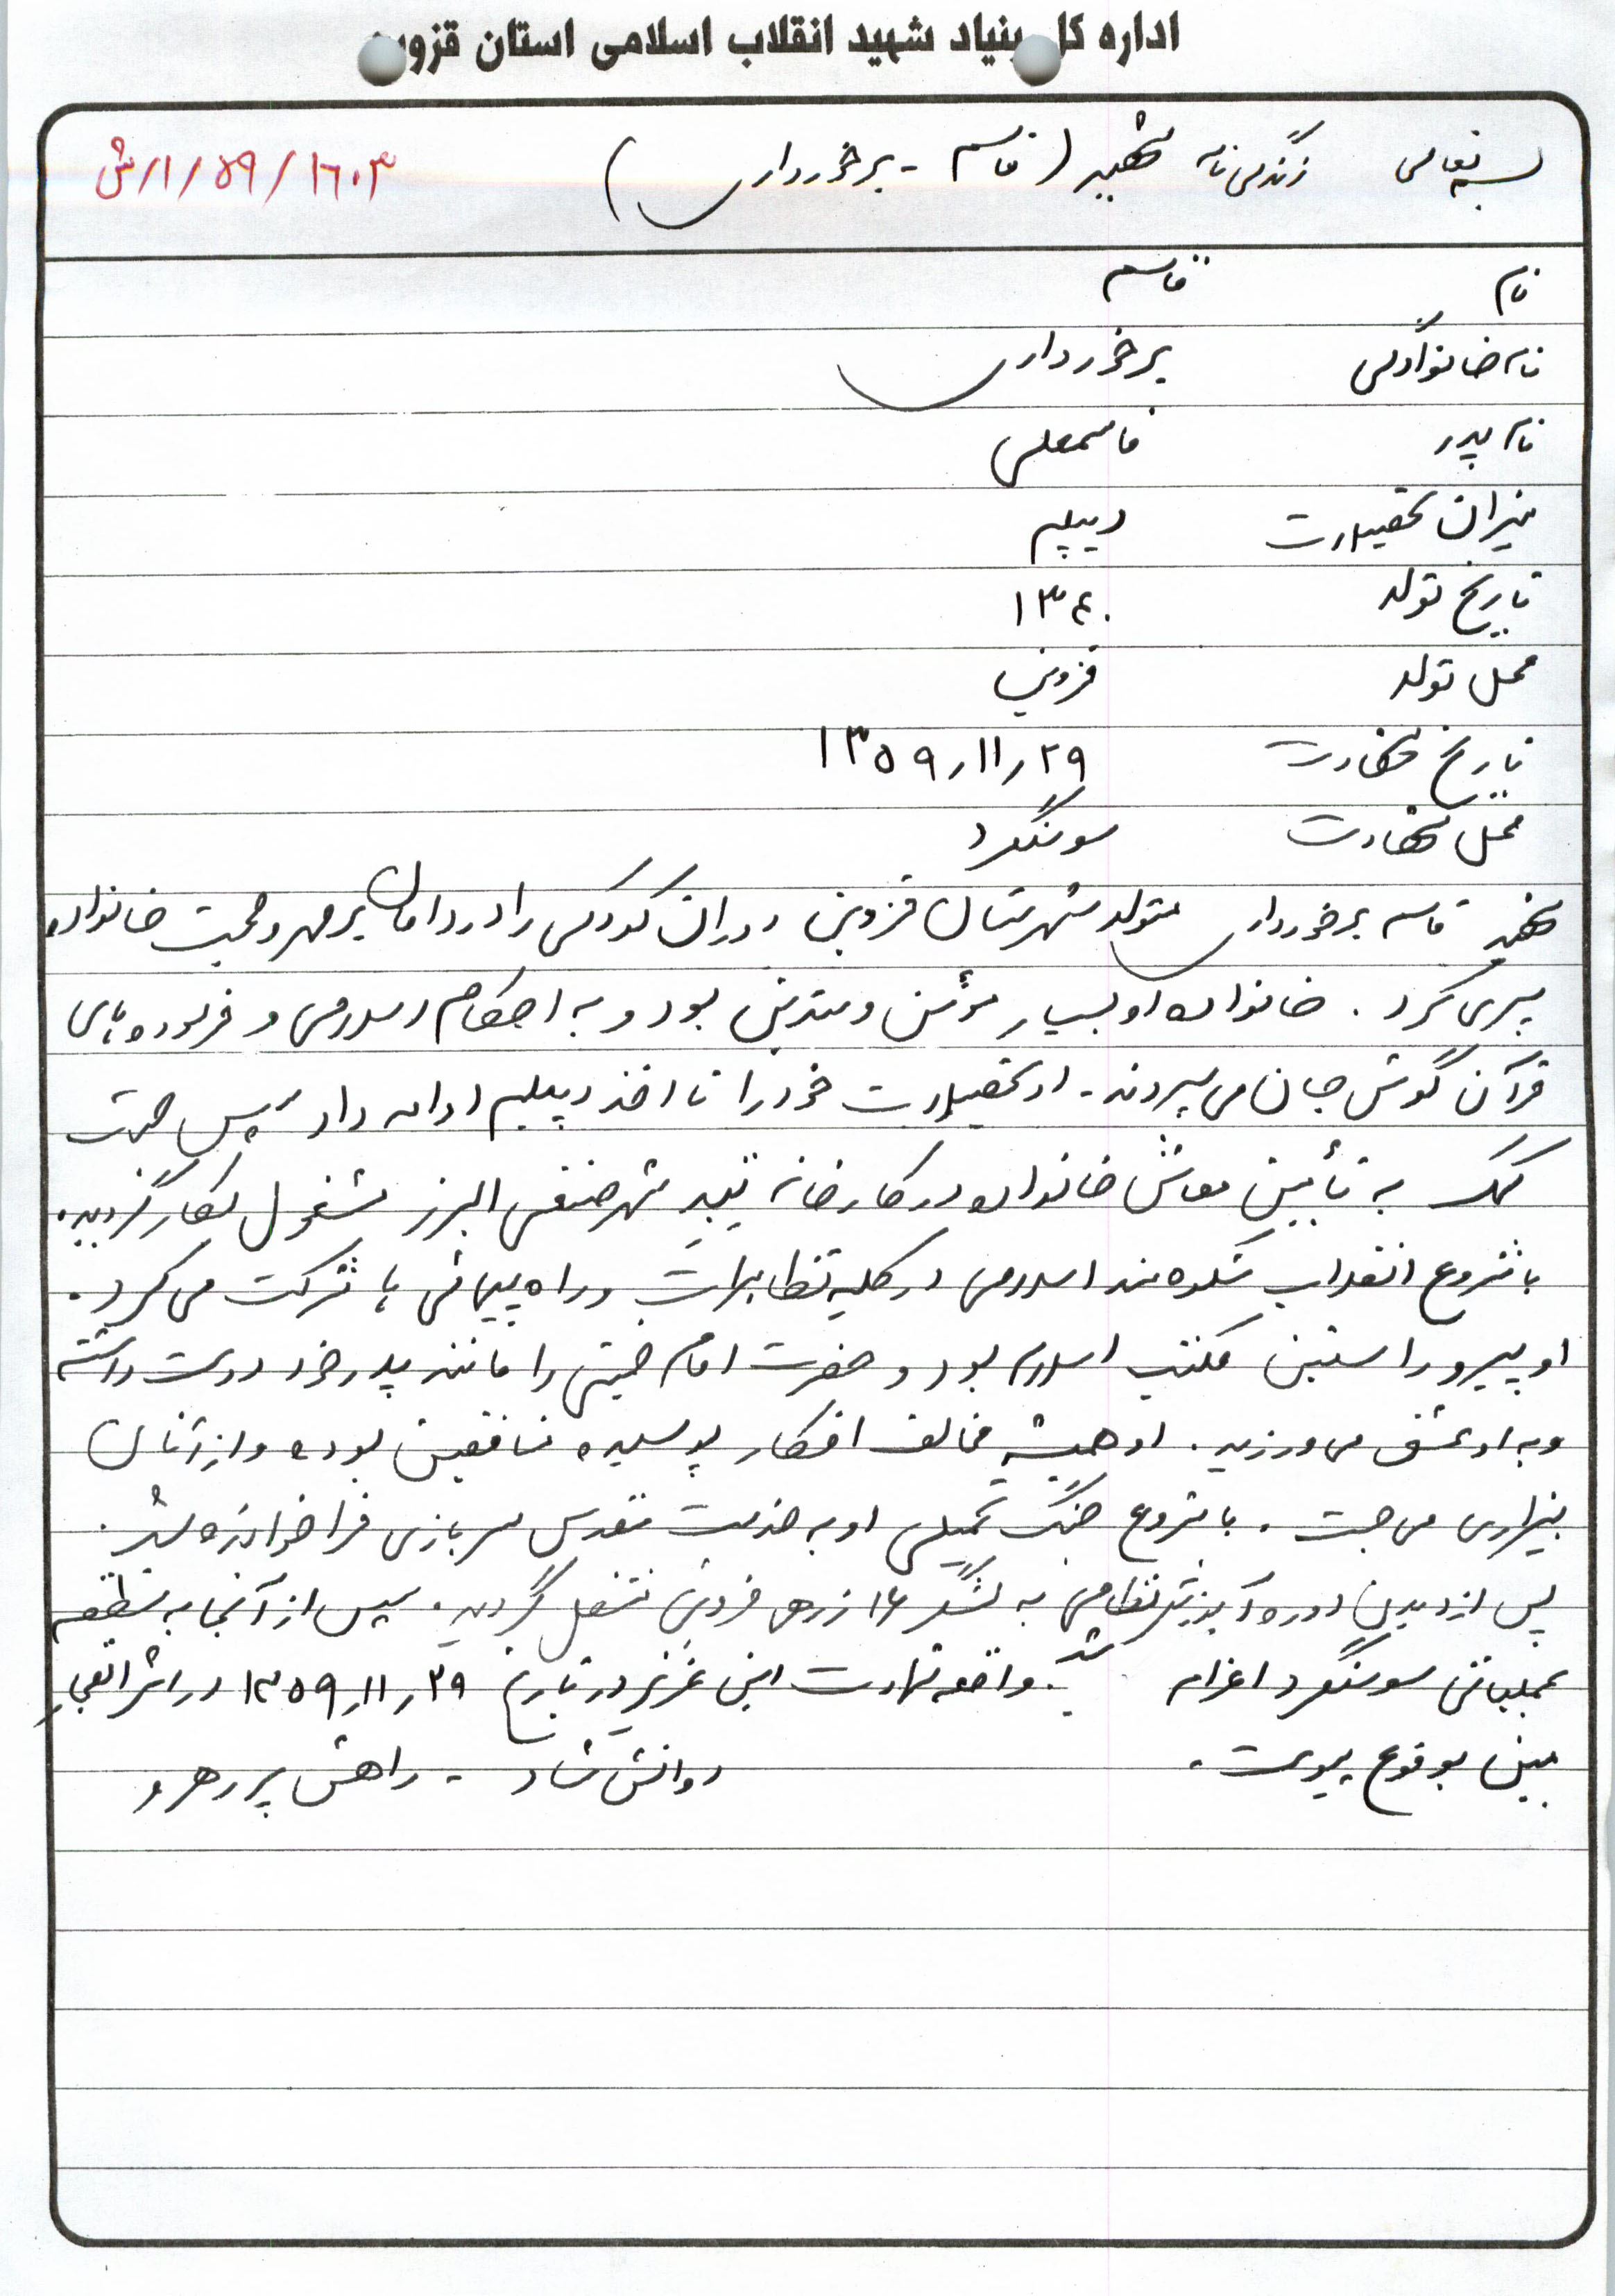 اداره کل بنیاد شهید انقلاب اسلامی استان قزوین
بسمه تعالی زندگی نامه شهید (قاسم - برخورداری)
۱۶۰۳/۵۹/۱/ش
نام قاسم
نام خانوادگی برخورداری
نام پدر قاسمعلی
میزان تحصیلات دیپلم
تاریخ تولد ۱۳۴۰
محل تولد قزوین
تاریخ شهادت ۲۹ر۱۱ر۱۳۵۹
محل شهادت سوسنگرد
شهید قاسم برخورداری متولد شهرستان قزوین دوران کودکی را در دامان پر مهر و محبت خانواده
سپری کرد. خانواده او بسیار مؤمن و متدین بود و به احکام اسلامی و فرموده های
قرآن گوش جان می سپردند - او تحصیلات خود را تا اخذ دیپلم ادامه داد سپس جهت
کمک به تأمین معاش خانواده در کارخانه شهر صنعتی البرز مشغول بکار گردید.
با شروع انقلاب شکوه مند اسلامی در کلیه تظاهرات و راه پیمائی ها شرکت می کرد.
او پیرو راستین مکتب اسلام بود و حضرت امام خمینی را مانند پدر خود دوست داشته
و به او عشق می ورزید. او همیشه مخالف افکار پوسیده منافقین بوده و از آنان
بیزاری می جست. با شروع جنگ تحمیلی او به خدمت مقدس سربازی فرا خوانده شد.
پس از دیدن دوره آموزش نظامی به لشگر ۱۶ زرهی قزوین منتقل گردید. سپس از آنجا به منطقه
عملیاتی سوسنگرد اعزام شد. واقعه شهادت این عزیز در تاریخ ۲۹ر۱۱ر۱۳۵۹ در اثر انفجار
مین بوقوع پیوست. روانش شاد - راهش پر رهرو